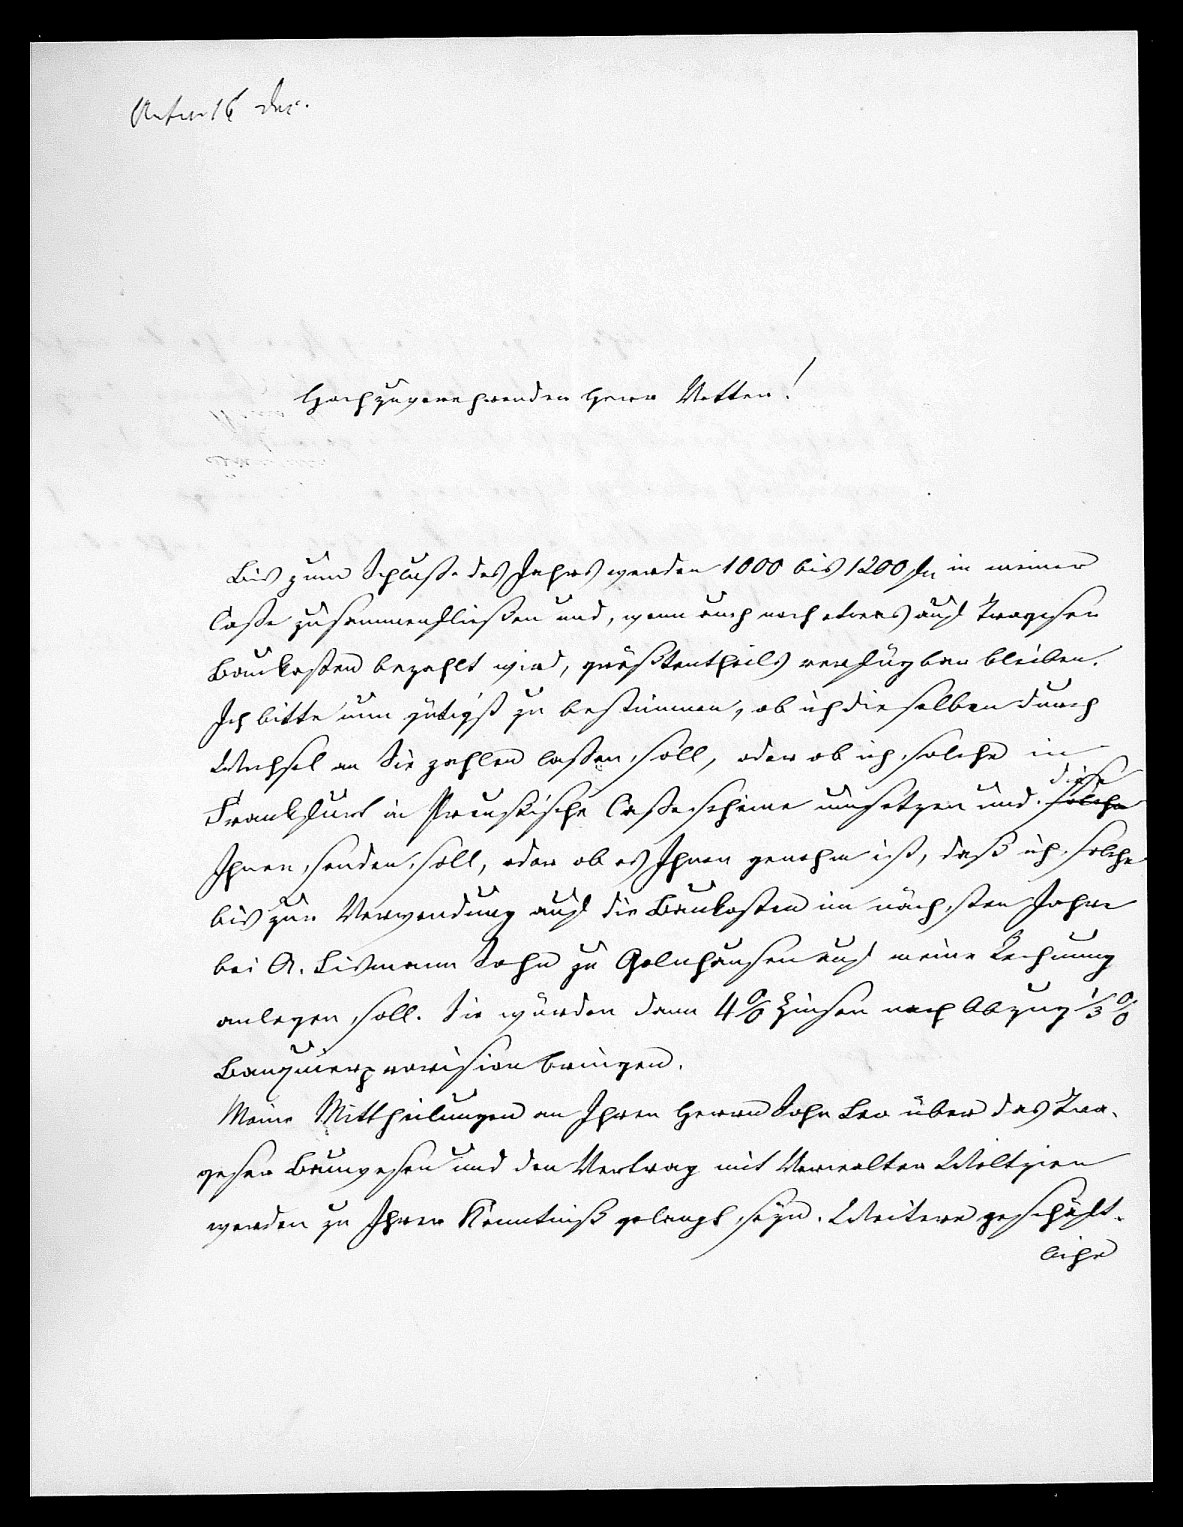 Antw 16 Dec.
Hochzuverehrender Herr Vetter!
Bis zum Schluße des Jahrs werden 1000 bis 1200 fl. in meiner
Casse zusammenfließen und, wenn auch noch etwas auf Trageser
Baukosten bezahlt wird, größtentheils verfügbar bleiben.
Ich bitte nun gütigst zu bestimmen, ob ich dieselben durch
Wechsel an Sie zahlen lassen soll, oder ob ich solche in
Frankfurt in Preussische Cassescheine umsetzen und solche diese
Ihnen senden soll, oder ob es Ihnen genehm ist, daß ich solche
bis zur Verwendung auf die Baukosten im nächsten Jahre
bei A. Lismann Sohn zu Gelnhausen auf meine Rechnung
anlegen soll. Sie würden dann 4% Zinsen nach Abzug 1/3 %
Banquierprovision bringen.
Meine Mittheilungen an Ihren Herrn Sohn Leo über das Tra-
geser Bauwesen und den Vertrag mit Verwalter Weltzien
werden zu Ihrer Kenntniß gelangt seyn. Weitere geschäft-
liche